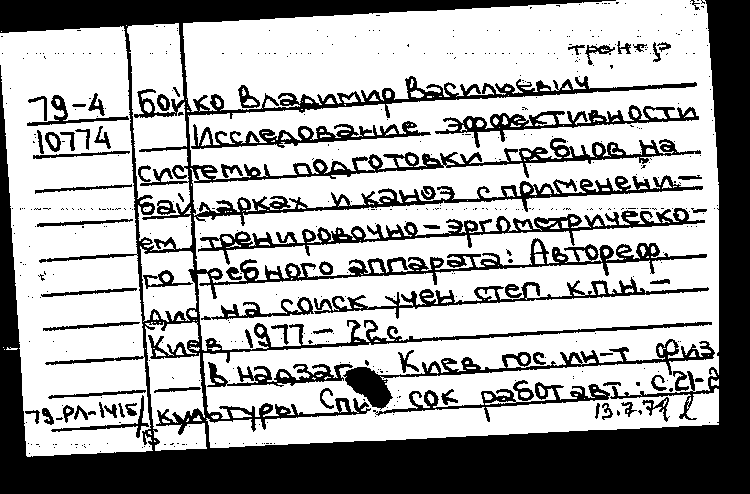 тренер
79-4 Бойко, Владимир Васильевич
10774 Исследование эффективности
системы подготовки гребцов на
байдарках и каноэ с применени-
ем тренировочно-эргометрическо-
го гребного аппарата: Автореф.
дис. на соиск учен. степ. к.п.н.-
Киев, 1977.- 22 с.
В надзаг.: Киев. гос. ин-т физ.
79-РЛ-1415/ культуры. Список работ авт.: с.21-2
15 13.7.79